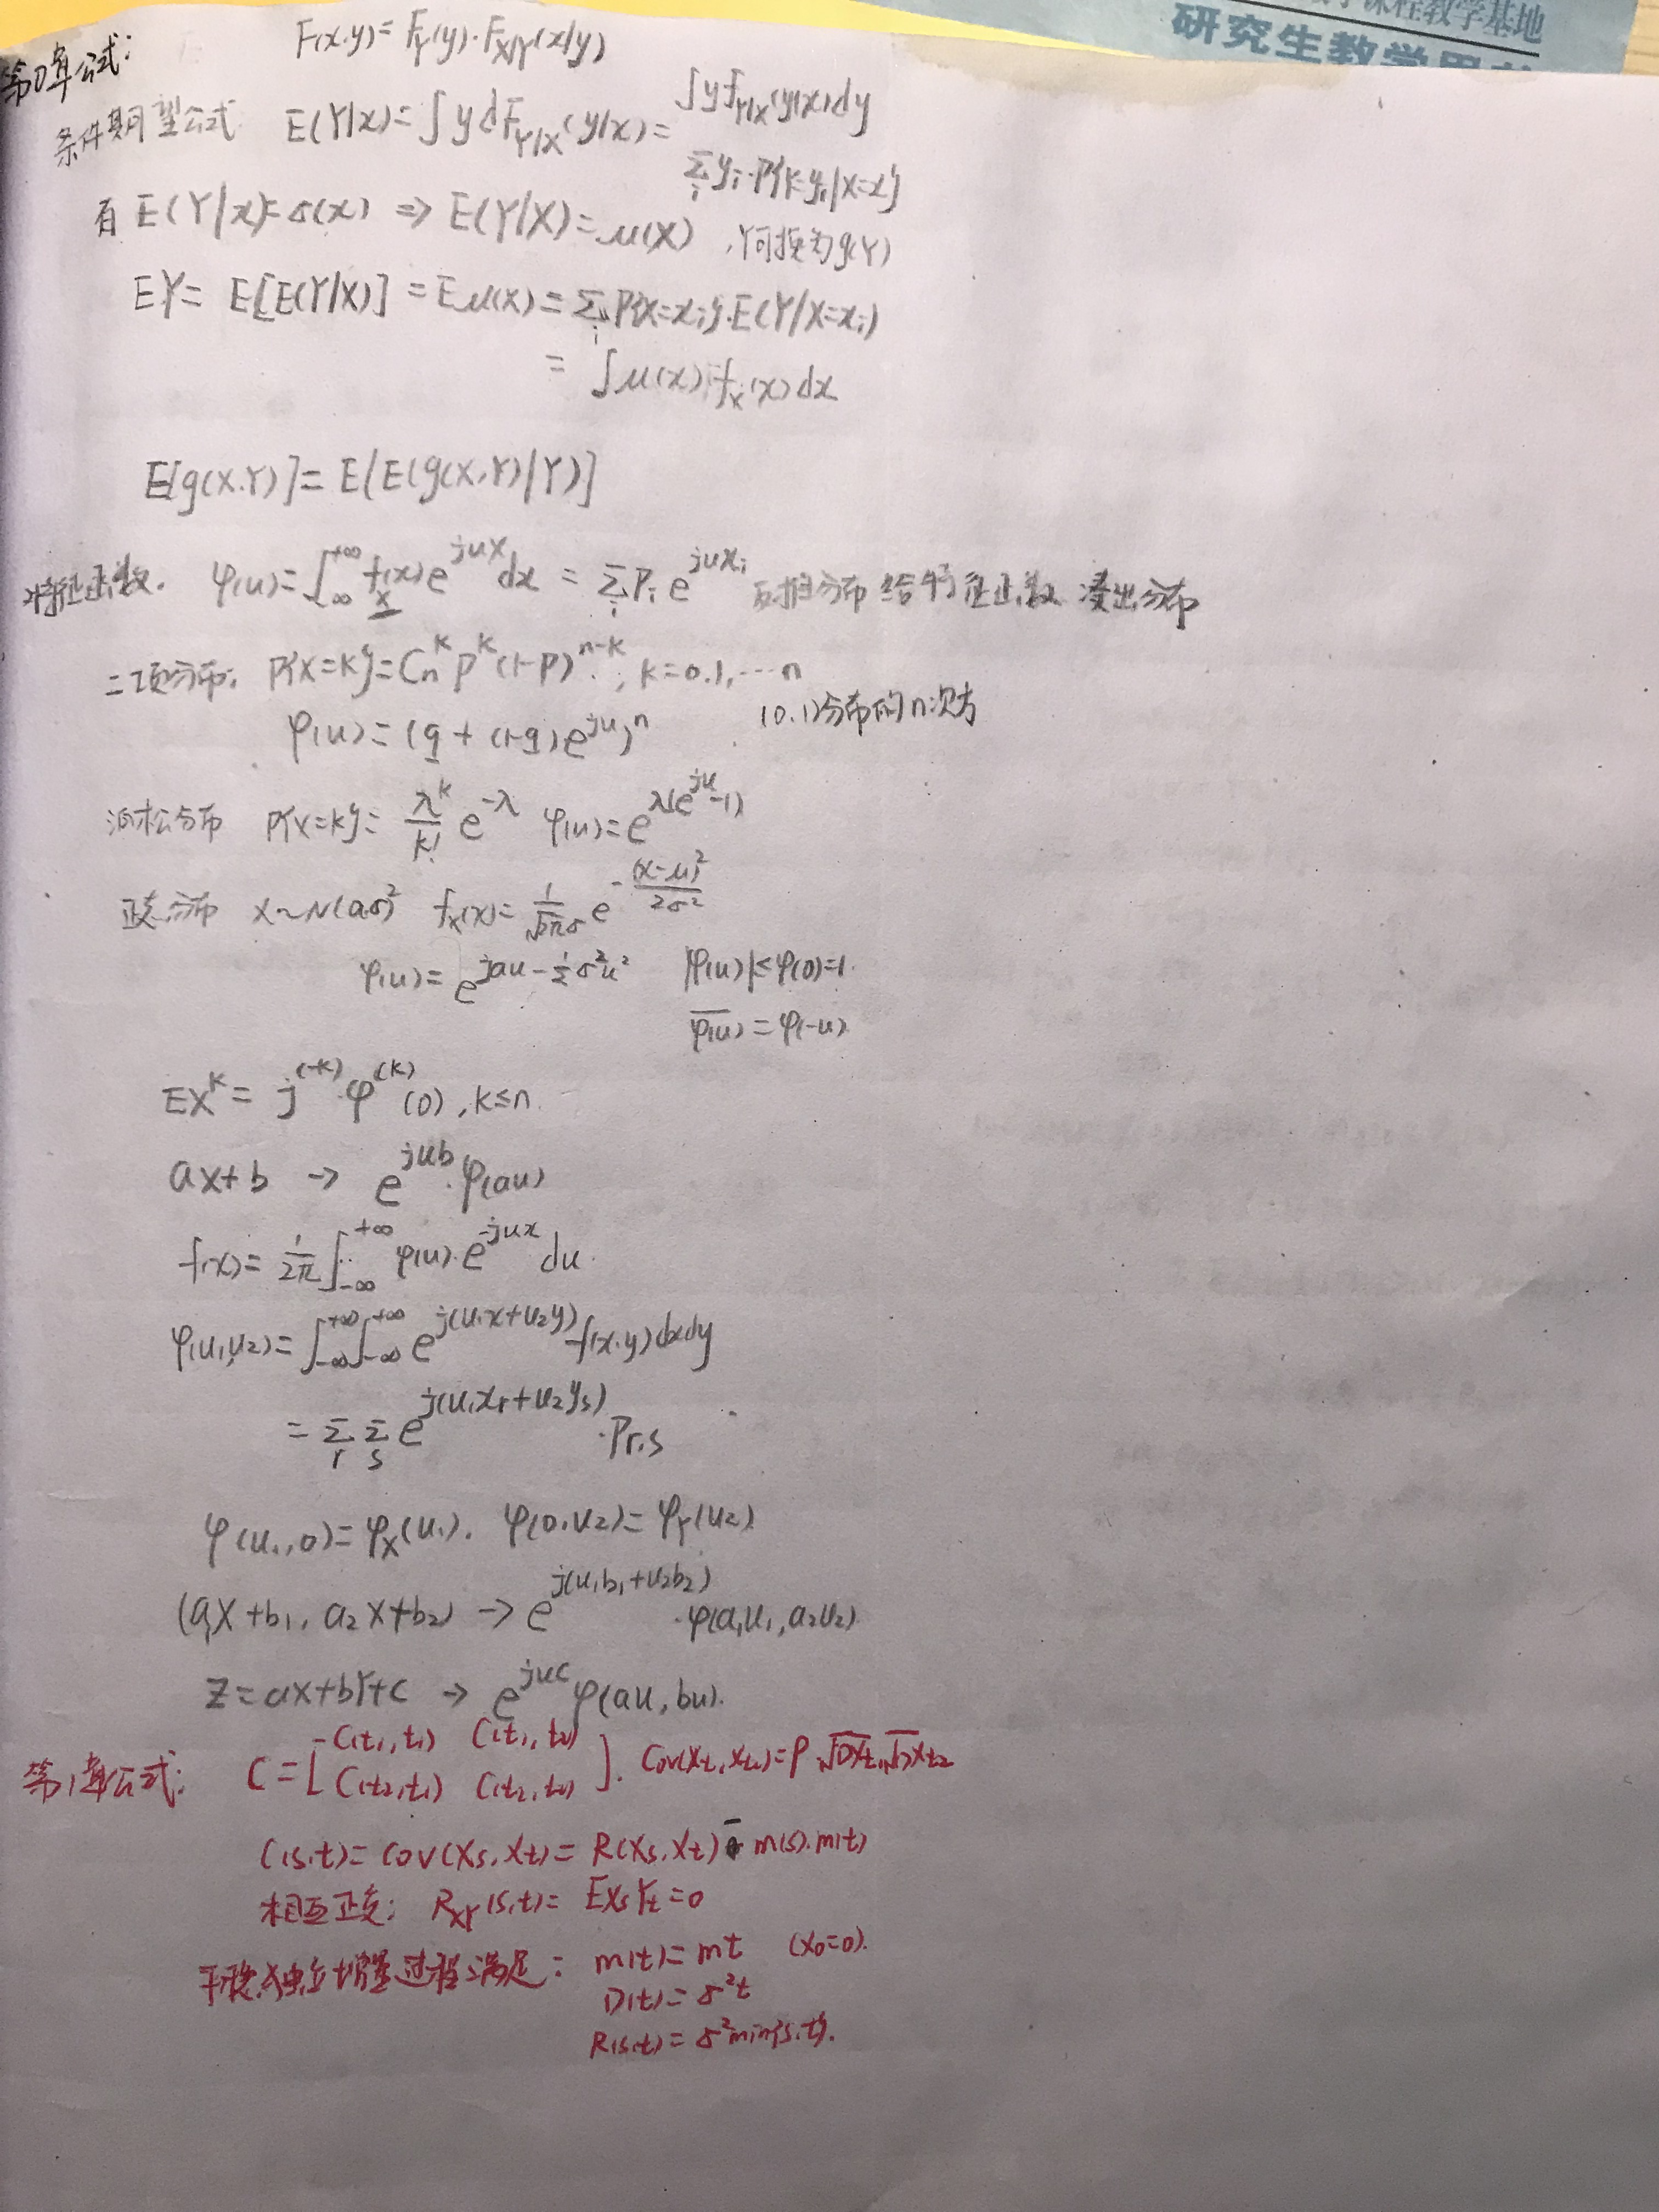 课程教学基地
研究生教学用书
第0章公式:
F(x.y)=F_Y(y)·F_{X|Y}(x/y)
条件期望公式 E(Y/x)=∫y dF_{Y/X}(y/x)=∫y f_{Y/X}(y/x)dy
Σ_i y_i·P{Y=y_i|X=x}
有 E(Y/x)=σ(x) ⇒ E(Y/X)=μ(X) ,Y可换为g(Y)
EY= E[E(Y/X)] = Eμ(X)=Σ_i P{X=x_i}·E(Y/X=x_i)
= ∫μ(x) f_X(x)dx
E[g(X.Y)]=E[E(g(X,Y)|Y)]
特征函数. φ(u)=∫_{-∞}^{+∞} f_X(x)e^{jux}dx = Σ_i P_i e^{jux_i} 反推分布 给特征函数 凑出分布
二项分布: P{X=k}=C_n^k p^k (1-p)^{n-k}, k=0.1,…n
φ(u)=(q+(1-q)e^{ju})^n (0.1)分布的n次方
泊松分布 P{X=k}= λ^k/k! e^{-λ} φ(u)=e^{λ(e^{ju}-1)}
正态分布 X~N(a,σ)^2 f_X(x)= 1/(√2π σ) e^{-(x-μ)^2/2σ^2}
φ(u)=e^{jau-½σ^2u^2} |φ(u)|≤φ(0)=1.
\overline{φ(u)}=φ(-u).
EX^k= j^{(-k)}·φ^{(k)}(0),k≤n.
aX+b → e^{jub}·φ(au)
f(x)= 1/2π ∫_{-∞}^{+∞} φ(u)·e^{-jux} du.
φ(u_1,u_2)=∫_{-∞}^{+∞}∫_{-∞}^{+∞} e^{j(u_1x+u_2y)} f(x.y)dxdy
= Σ_r Σ_s e^{j(u_1x_r+u_2y_s)}·P_{r,s}
φ(u_1,0)=φ_X(u_1). φ(0,u_2)=φ_Y(u_2)
(a_1X+b_1, a_2X+b_2) → e^{j(u_1b_1+u_2b_2)}·φ(a_1u_1,a_2u_2)
Z=aX+bY+c → e^{juc}φ(au,bu).
第1章公式: C=[C(t_1,t_1) C(t_1,t_2)
C(t_2,t_1) C(t_2,t_2)]. Cov(X_{t_1},X_{t_2})=ρ√DX_{t_1}√DX_{t_2}
C(s.t)=Cov(Xs,Xt)=R(Xs,Xt)-m(s).m(t)
相互正交: R_{XY}(s,t)= EXsYt=0
平稳独立增量过程满足: m(t)=mt (X_0=0).
D(t)=σ^2t
R(s.t)=σ^2min{s.t}.